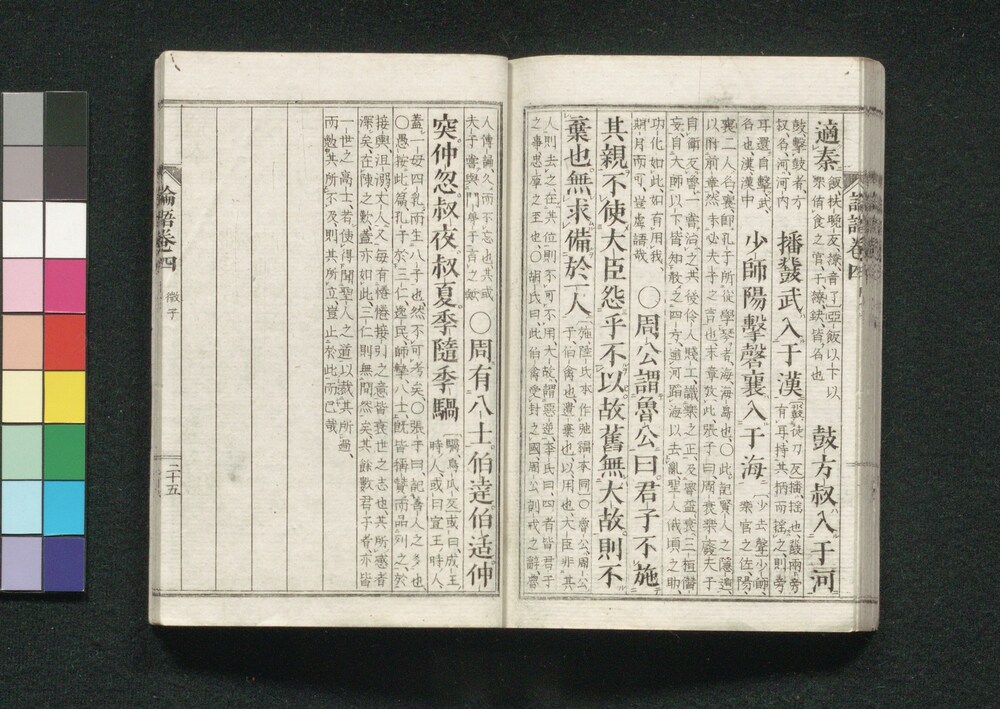 論語卷四
適秦
飯扶晚反繚音了○亞飯以下以
樂侑食之官干繚缺皆名也
鼓方叔入于河
鼓、擊鼓者、方
叔名、河河內
播鼗武入于漢
鼗徒刀反播、搖也、鼗兩旁
有耳持其柄而搖之則旁
耳還自擊、武、
名也、漢漢中
少師陽擊磬襄入于海
少去聲少師、
樂官之佐、陽、
襄二人名、襄即孔子所從學琴者、海海島也、○此記賢人之隱遯
以附前章、然未必夫子之言也、末章放此、張子曰周衰樂廢夫子
自衛反魯、一嘗治之、其後伶人賤工、識樂之正、及魯益衰、三桓僭
妄、自大師以下皆知散之四方、逾河蹈海以去亂、聖人俄頃之助、
功化如此、如有用我、
期月而可、豈虛語哉
○周公謂魯公曰君子不施
其親不使大臣怨乎不以故舊無大故則不
棄也無求備於一人
施、陸氏本作弛福本同○魯公、周公
子伯禽也、遺棄也、以用也、大臣非其
人則去之、在其位則不可不用、大故謂惡逆、李氏曰、四者皆君子
之事忠厚之至也、○胡氏曰、此伯禽受封之國、周公訓戒之辭、魯
人傳誦久而不忘也、其或
夫子嘗與門弟子言之歟
○周有八士。伯達伯适仲
突仲忽叔夜叔夏季隨季騧
騧烏瓜反或曰成王
時人或曰宣王時人、
蓋一母四乳而生八子也、然不可考矣、○張子曰、記善人之多也、
○愚按此篇、孔子於三仁、逸民、師摯、八士、既皆稱贊而品列之、於
接輿、沮溺、丈人、又每有惓惓接引之意、皆衰世之志也、其所感者
深矣、在陳之歎、蓋亦如此、三仁則無間然矣、其餘數君子者、亦皆
一世之高士、若使得聞聖人之道以裁其所過、
而勉其所不及則其所立、豈止於此而已哉
論語卷四
微子
二十五